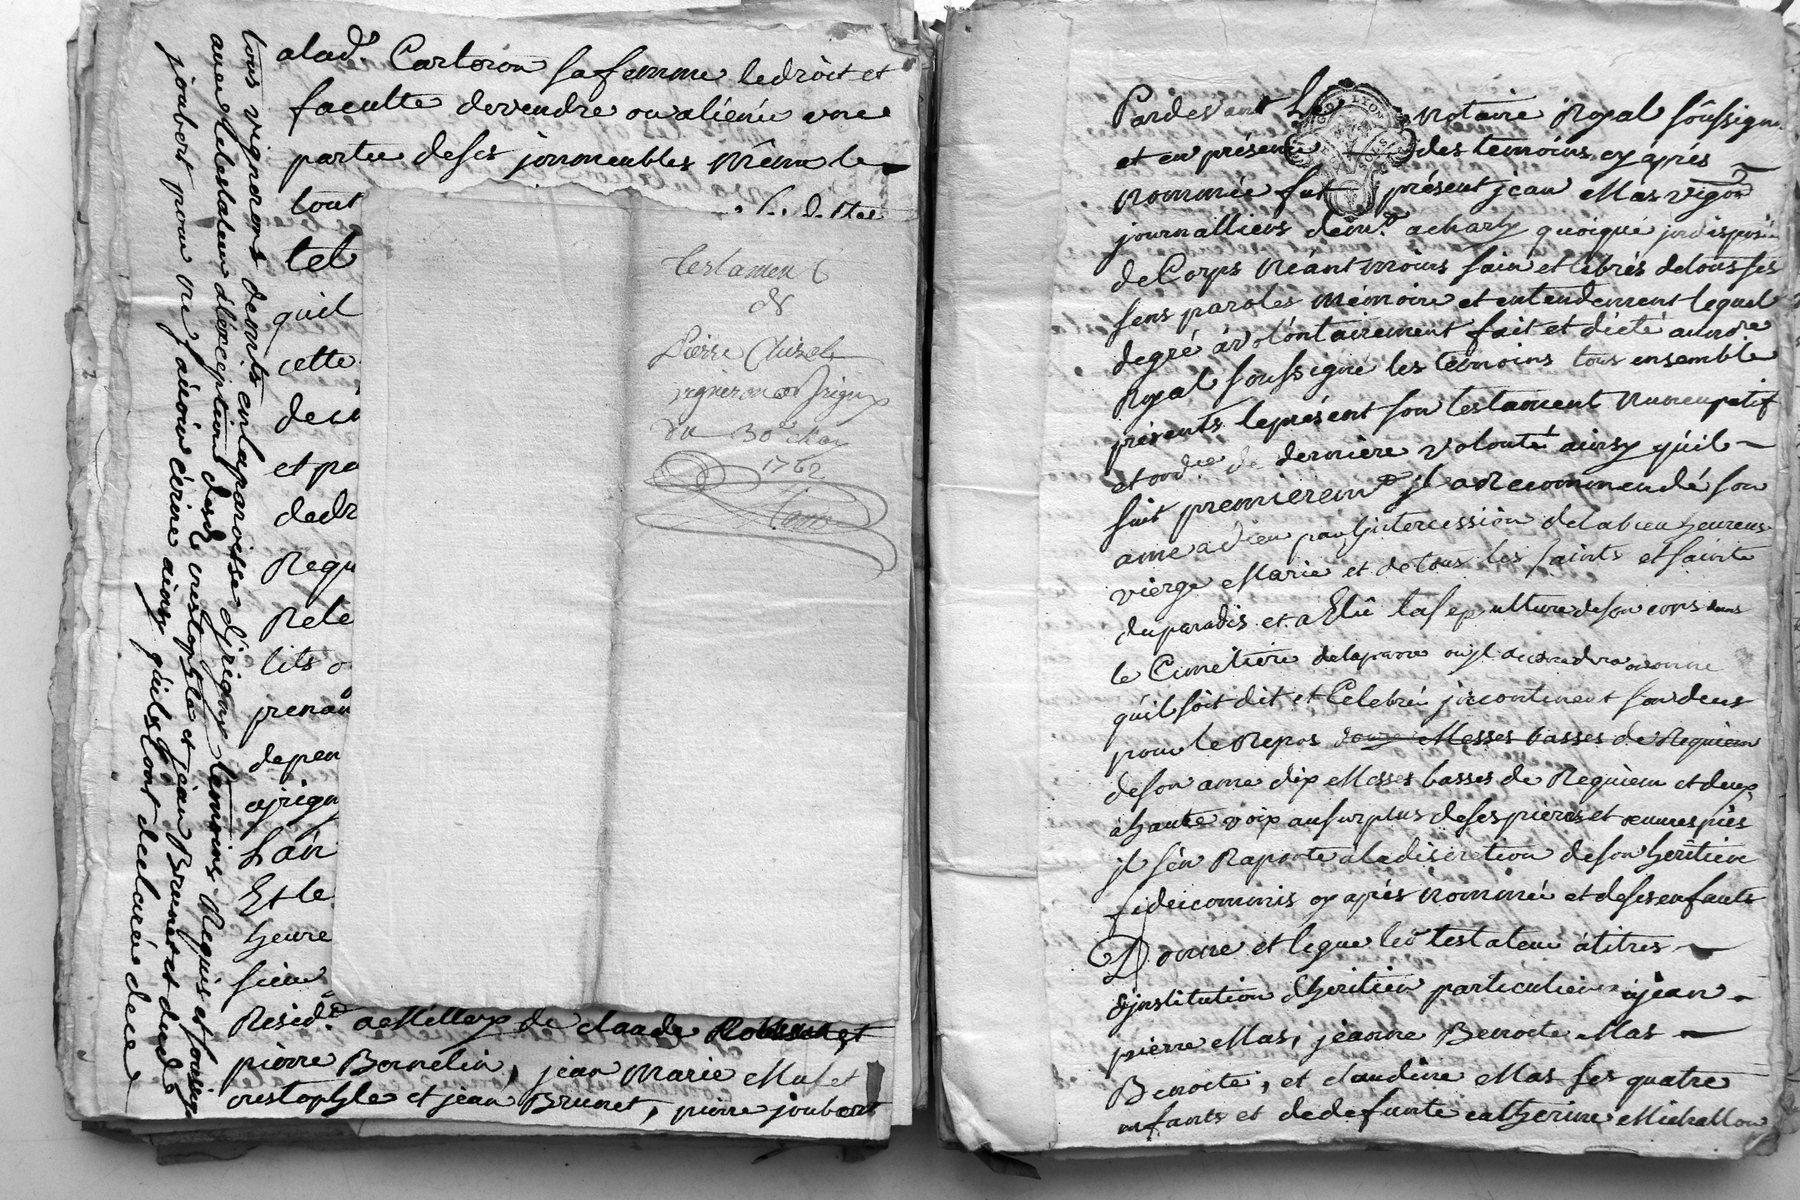 alad.e Cartoron sa femme ledroit et
faculte devendre ou aliéner une
partie deses jmmeubles même le
tout
tel
quil
cette
et pa
dedr
Requ
Rele
lits o
prenan
depen
ajrigny
Lan
Et le
heure
sieur
Resid.t a Millery de claude
pierre Bornelin, jean Marie Mul et
crestophle et jean Brunet, pierre joubert
tous vignerons demts. enlaparoisse djrigny temoins Requis et soussigs
avec letestateur déxception dud. crestophle et jean Brunet et dud.
joubert pour ne sçavoir écrire ainsy quils lont declarée dece
Testament
de
Pierre Chizel
vigneron a Jrigny
du 30e May
1762
Pardevant Le notaire Royal soussigné
et en présence des temoins cy aprés
nommée fut présent jean Mas vigon
journalliers demt. a charly quoique jndisposé
de Corps néantmoins sain et librés detous ses
sens paroles mémoire et entendement lequel
degré à volontairement fait et dicté aunore
Royal soussigné les temoins tous ensemble
présents leprésent son testament nuncupatif
et ordre de derniére volonté ainsy quil
suit premierement jl a Recommendé son
ame a dieu par lintercession delabien heureuse
vierge Marie et de tous les saints et sainte
du paradis et a Elû lasepulture deson corps dans
le Cimetiére delaparre ou jl decedera ordonne
quil soit dit et Celebré jncontinent son deces
pour le Repos douze Messes basses de Requiem
deson ame dix Messes basses de Requiem et deux
à haute voix au surplus deses prieres et oeuvres piés
jl sén Raporte aladiscretion deson heritier
fideicommis cy aprés nommé et deses enfants
Donne et legue led. testateur àtitres
djnstitution dheritier particuliere ajean
pierre Mas, jeanne Benoite Mas
Benoite, et claudine Mas ses quatre
enfants et dedefunte catherine Michallon